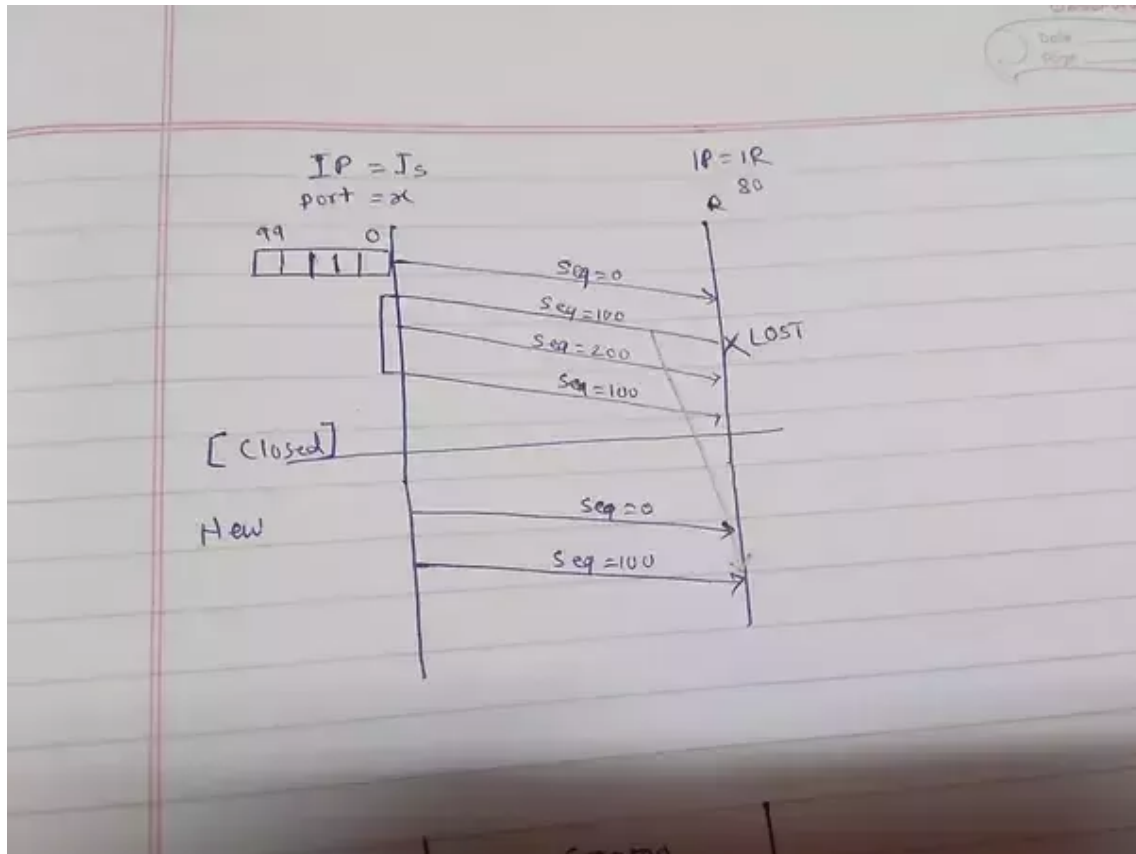 Date
Page
IP = Is
port = x
IP = IR
R 80
99 0
Seq=0
Seq=100
LOST
Seq=200
Seq=100
[Closed]
New
Seq=0
Seq=100